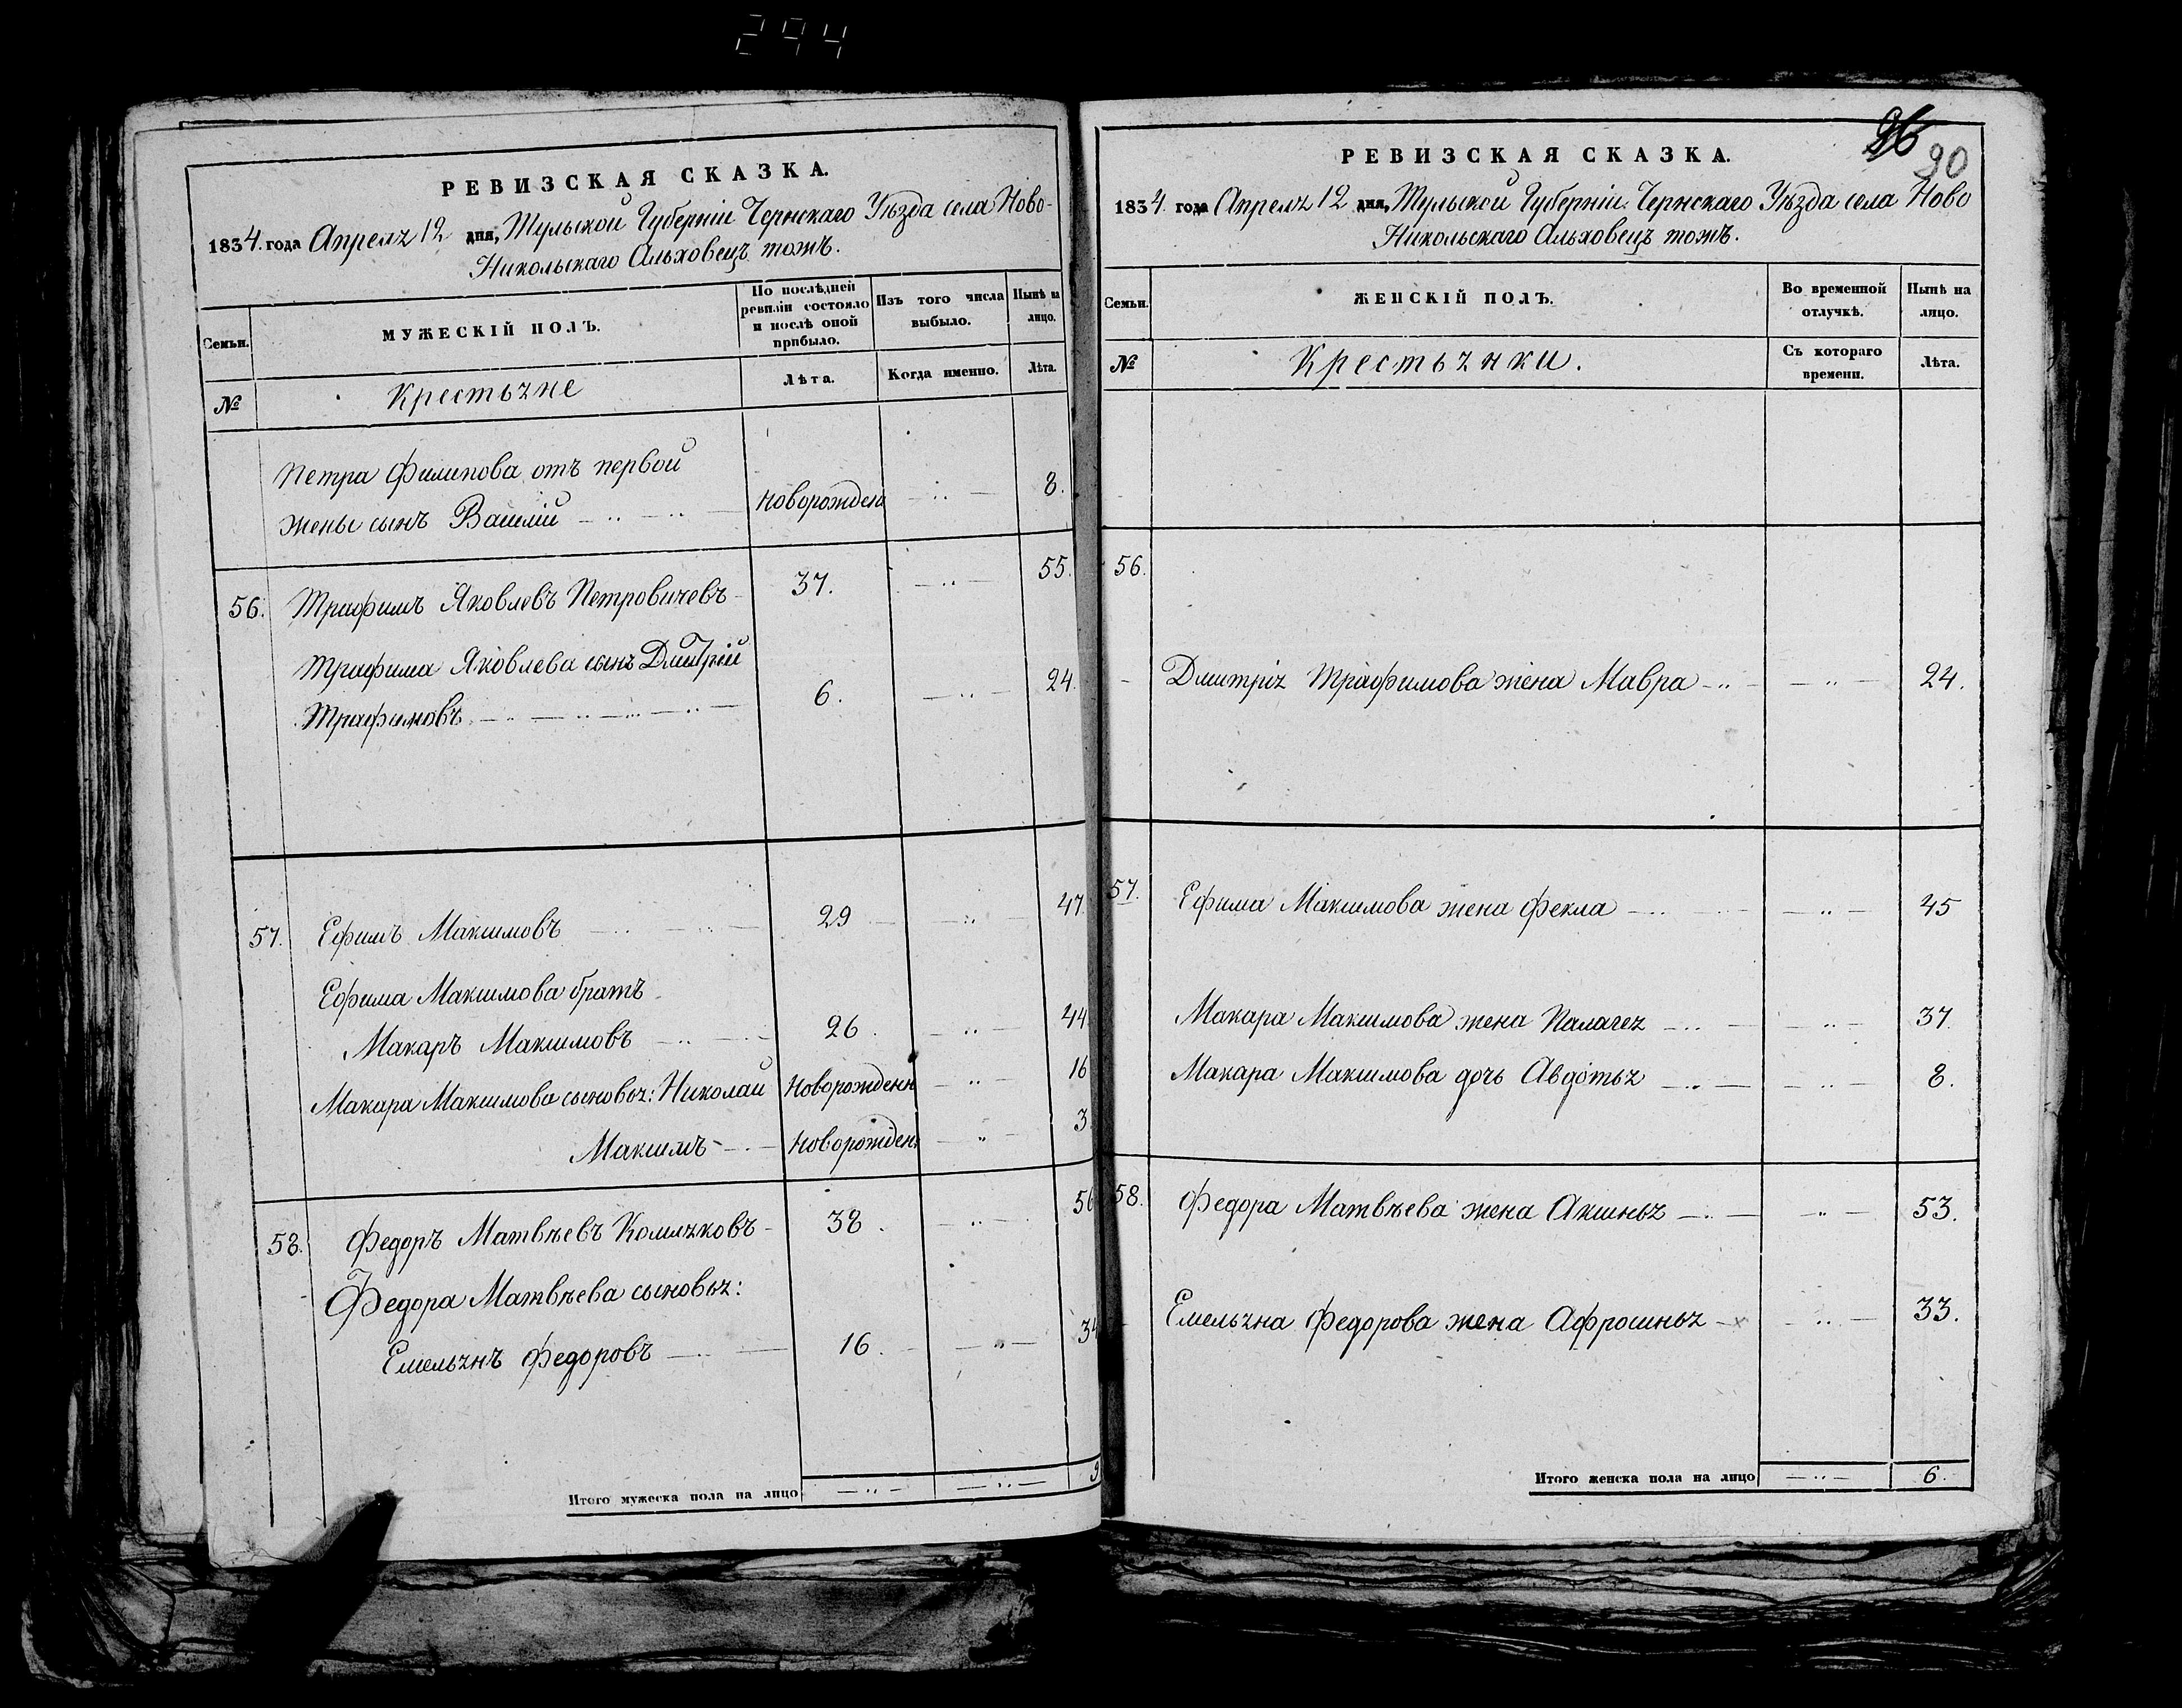 294
РЕВИЗСКАЯ СКАЗКА.
1834. года Апреля 12 дня, Тульской Губерніи Чернскаго Уѣзда села Ново-
Никольскаго Альховецъ тожъ.
Семьи.
МУЖЕСКІЙ ПОЛЪ.
По послѣдней ревизіи состояло и послѣ оной прибыло.
Изъ того числа выбыло.
Нынѣ на лицо.
№
Крестьяне
Лѣта.
Когда именно.
Лѣта.
Петра Филипова отъ первой
жены сынъ Василій новорожден 8.
56. Трафимъ Яковлевъ Петровичевъ 37. 55.
Трафима Яковлева сынъ Дмитрій
Трафимовъ 6. 24.
57. Ефимъ Максимовъ 29 47
Ефима Максимова братъ
Макаръ Максимовъ 26. 44
Макара Максимова сыновья: Николай Новорожденн 16
Максимъ новорожден 3
58. Федоръ Матвѣевъ Комляковъ 38. 56
Федора Матвѣева сыновья:
Емельянъ Федоровъ 16. 34
Итого мужеска пола на лицо 9
96
90
РЕВИЗСКАЯ СКАЗКА.
1834. года Апреля 12 дня, Тульской Губерніи Чернскаго Уѣзда села Ново
Никольскаго Альховецъ тожъ.
Семьи.
ЖЕНСКІЙ ПОЛЪ.
Во временной отлучкѣ.
Нынѣ на лицо.
№
Крестьянки.
Съ котораго времени.
Лѣта.
56.
Дмитрія Трафимова жена Мавра 24.
57. Ефима Максимова жена Фекла 45
Макара Максимова жена Палагея 37.
Макара Максимова дочь Авдотья 8.
58. Федора Матвѣева жена Аксинья 53.
Емельяна Федорова жена Афросинья 33.
Итого женска пола на лицо 6.